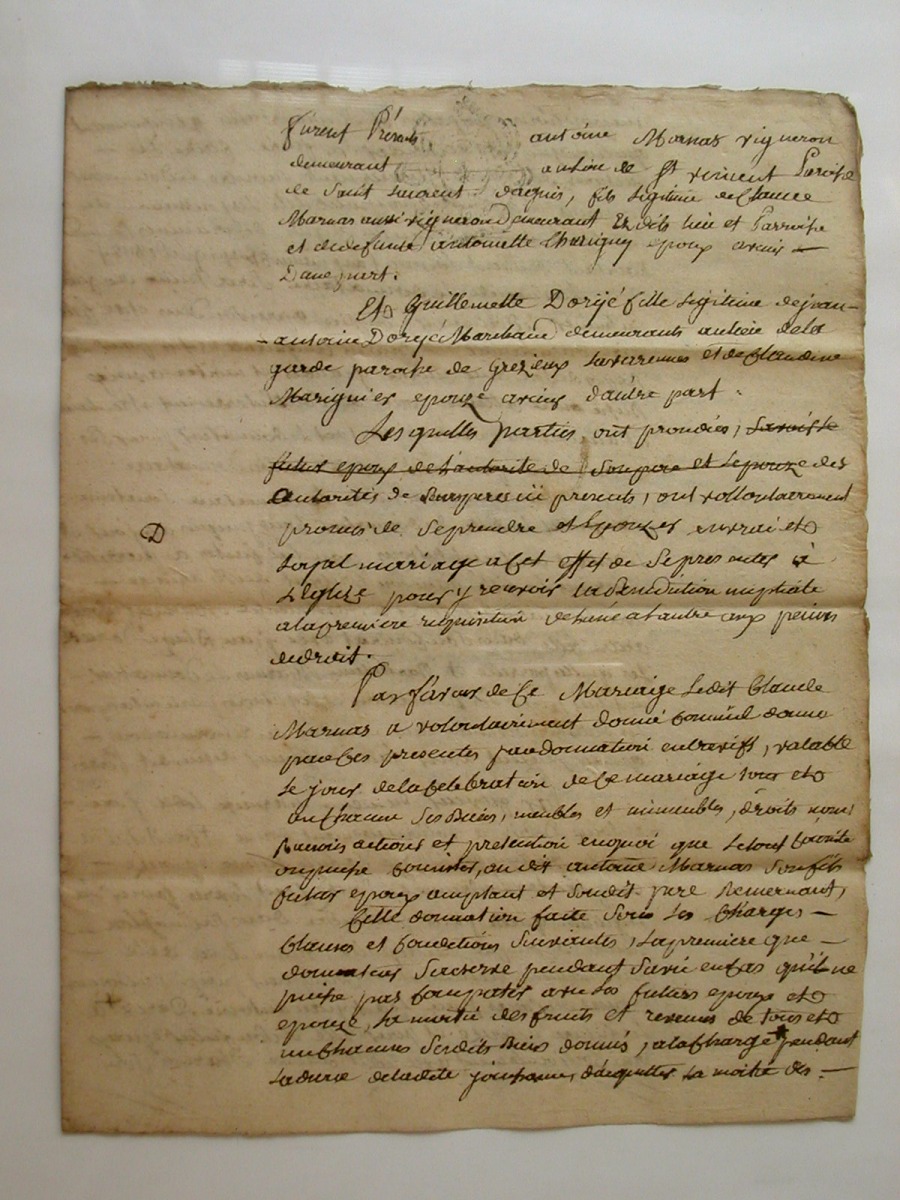 furent Présents antoine Marnas vigneron
demeurant aulieu de St vincent Paroisse
de saint Laurent dagnis, fils Legitime de Claude
Marnas aussi vigneron Demeurant Esdits lieu et Parroisse
et dedefunte antoinette Charigny epoux avenir
Dune part.
Et Guillemette Dorÿé fille Legitime de jean
antoine Doryé Marchand demeurants aulieu dela
garde paroisse de Grezieux Lavarennes et de Claudine
Marignier epouze avenir d'autre part.
Lesquelles parties, ont procedées, Savoir le
futur epoux de L'autorité de Son pere et Lepouze des
autorités de leurs peres ici presents, ont vollontairement
D
promis de Seprendre et Epouzer envrai et
Loyal mariage a Cet effet de Sepresenter à
L'Eglize pour y recevoir la Benediction nuptiale
alapremiere requisition delune a lautre aux peines
dedroit.
Par faveur de Ce Mariage Ledit Claude
Marnas a volontairement donné Comme il donne
par Ces presentes par donnation entrevifs, valable
Le jour delaCelebration de Ce mariage tous et
unChacun Ses Biens, meubles et immeubles, droits noms
Raisons actions et pretention enquoi que Letout Conciste
ou puisse Conister, au dit antoine Marnas Son fils
futur epoux aceptant et Sondit pere Remerciant,
Cette donnation faite Sous Les Charges
Clauses et Conditions Suivantes, Lapremiere que
donnateur Sereserve pendant Savie enCas qu'il ne
puisse pas Compatir avec Les futurs epoux et
epouze, La moitié des fruits et revenus de tous et
unChacuns Sesdits Biens donnés, alaCharge pendant
Ladurée deladite jouissance, d'acquitter La moitié des